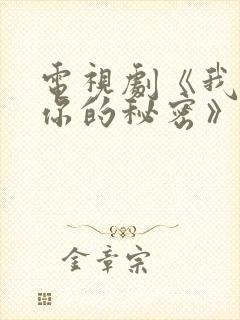 電視劇《我
你的秘密》
金章宗